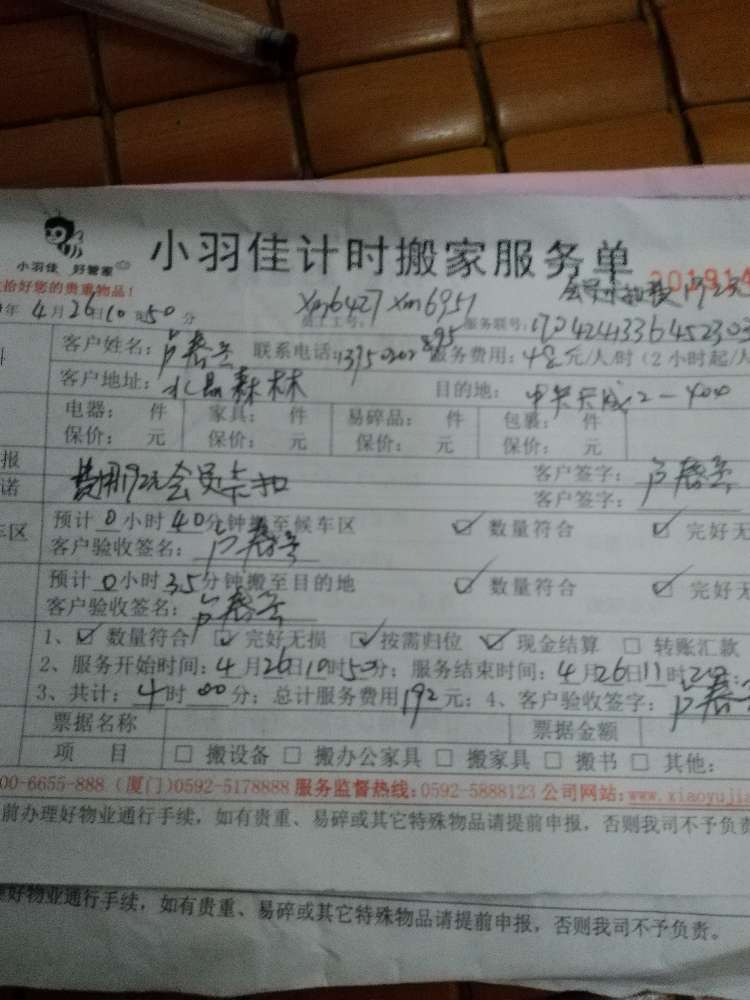 小羽佳计时搬家服务单
小羽佳 好管家
拾好您的贵重物品！
201914
年4月26日10时50分
员工工号： xm6427 xm6951
服务联号：
客户姓名： 联系电话： 服务费用：48元/人/时（2小时起/人
客户地址：水晶森林 目的地：
电器： 件 家具： 件 易碎品： 件 包裹： 件
保价： 元 保价： 元 保价： 元 保价： 元
报
诺
费用192元会员卡扣
客户签字：
客户签字：
车区
预计0小时40分钟搬至候车区 ☑ 数量符合 ☑ 完好无
客户验收签名：
预计0小时35分钟搬至目的地 ☑ 数量符合 ☑ 完好无
客户验收签名：
1、☑ 数量符合 ☑ 完好无损 ☑ 按需归位 ☑ 现金结算 □ 转账汇款
2、服务开始时间：4月26日10时50分；服务结束时间：4月26日11时
3、共计：4时00分；总计服务费用192元；4、客户验收签字：
票据名称 票据金额
项 目 □ 搬设备 □ 搬办公家具 □ 搬家具 □ 搬书 □ 其他：
00-6655-888 （厦门）0592-5178888 服务监督热线：0592-5888123 公司网站：www.xiaoyujia
前办理好物业通行手续，如有贵重、易碎或其它特殊物品请提前申报，否则我司不予负责
好物业通行手续，如有贵重、易碎或其它特殊物品请提前申报，否则我司不予负责。